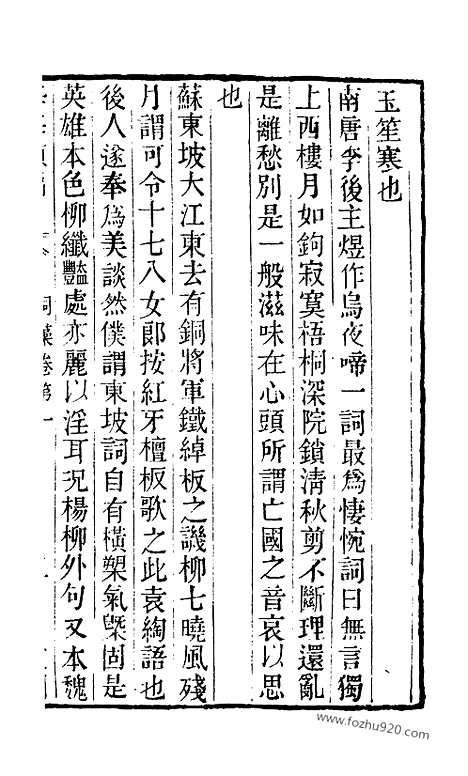 玉笙寒也
南唐李後主煜作烏夜啼一詞最爲悽惋詞曰無言獨
上西樓月如鉤寂寞梧桐深院鎖清秋剪不斷理還亂
是離愁別是一般滋味在心頭所謂亡國之音哀以思
也
蘇東坡大江東去有銅將軍鐵綽板之譏柳七曉風殘
月謂可令十七八女郎按紅牙檀板歌之此袁綯語也
後人遂奉爲美談然僕謂東坡詞自有橫槊氣槩固是
英雄本色柳纖豔處亦麗以淫耳況楊柳外句又本魏
詞藻卷第一
www.fozhu920.com